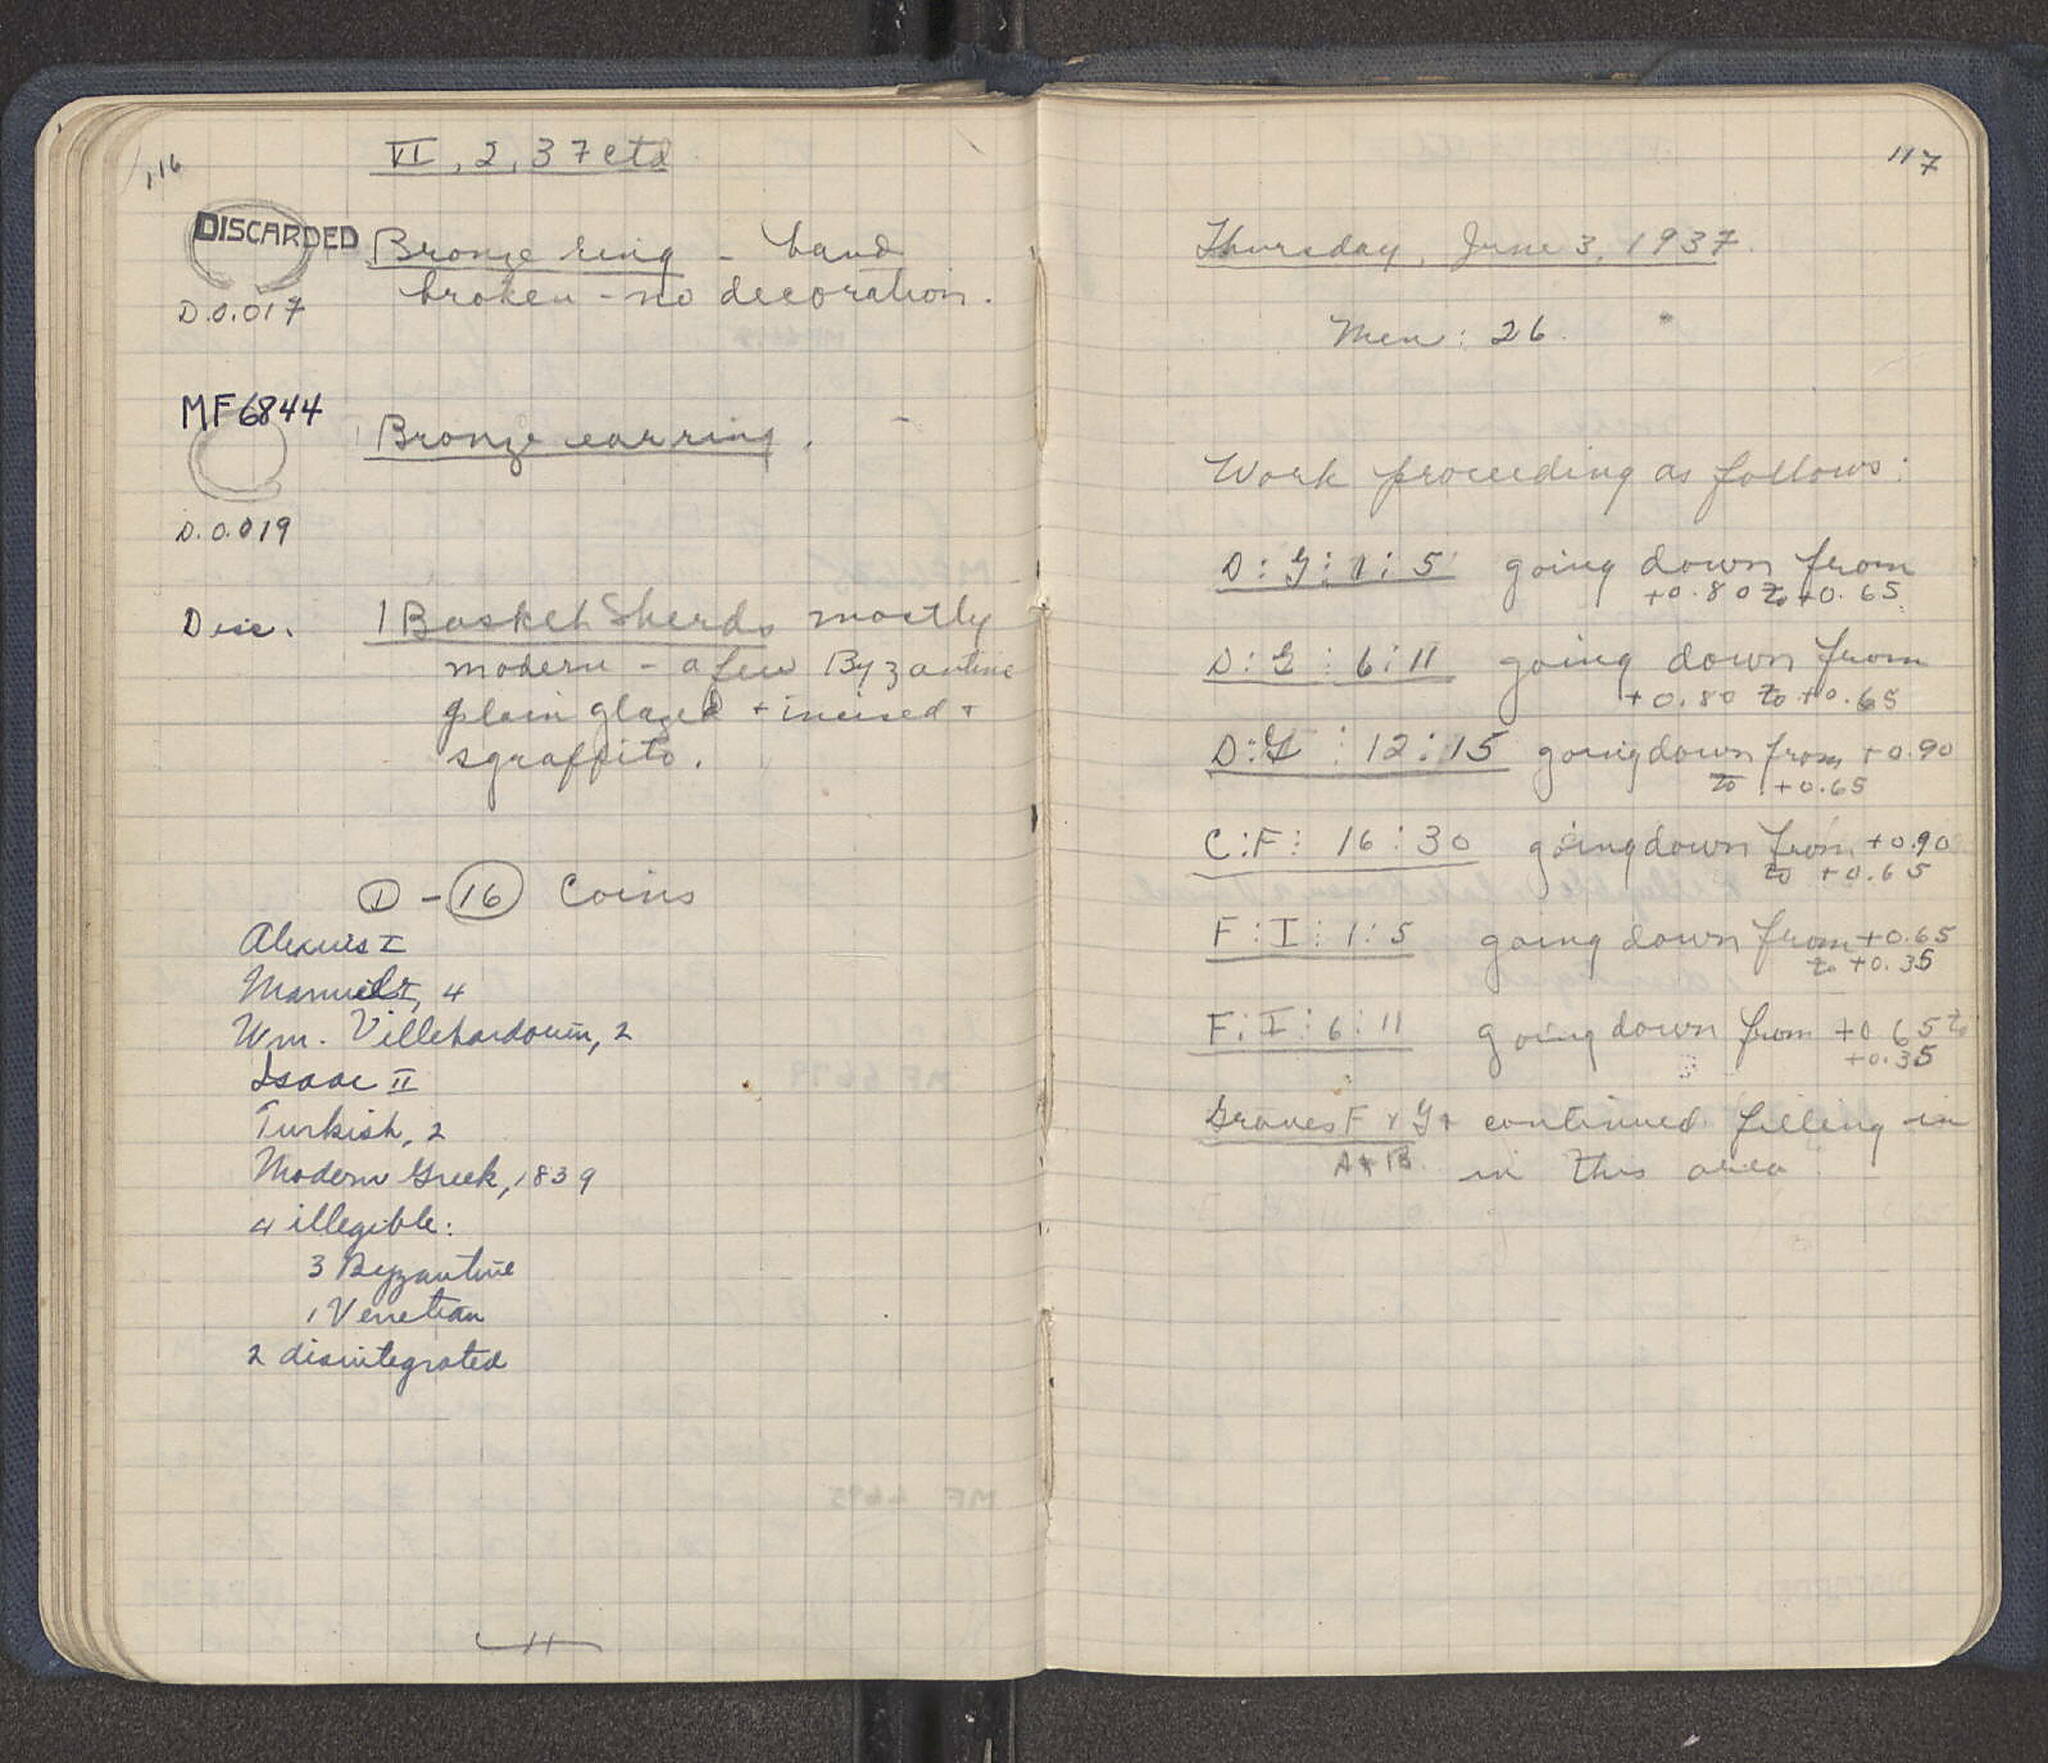 116
VI, 2, 37 ctd
DISCARDED
Bronze ring - band
broken - no decoration.
D.O.017
MF6844
Bronze earring.
D.O.019
Disc.
1 Basket Sherds mostly
modern - a few Byzantine
plain glazed + incised +
sgraffito.
1 - 16 Coins
Alexius I
Manuel I, 4
Wm. Villehardouin, 2
Isaac II
Turkish, 2
Modern Greek, 1839
4 illegible:
3 Byzantine
1 Venetian
2 disintegrated
117
Thursday, June 3, 1937.
Men: 26.
Work proceeding as follows:
D:G:1:5 going down from
+0.80 to +0.65
D:G:6:11 going down from
+0.80 to +0.65
D:G:12:15 going down from +0.90
to +0.65
C:F:16:30 going down from +0.90
to +0.65
F:I:1:5 going down from +0.65
to +0.35
F:I:6:11 going down from +0.65 to
+0.35
Graves F + G + continued filling in
A + B. in this area.